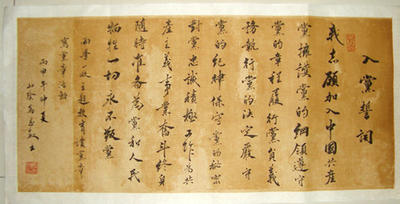 入黨誓詞
我志願加入中國共產
黨擁護黨的綱領遵守
黨的章程履行黨員義
務執行黨的決定嚴守
黨的紀律保守黨的秘密
對黨忠誠積極工作為共
產主義事業奮斗終身
隨時准备為黨和人民
犧牲一切永不叛黨
丙甲年仲夏